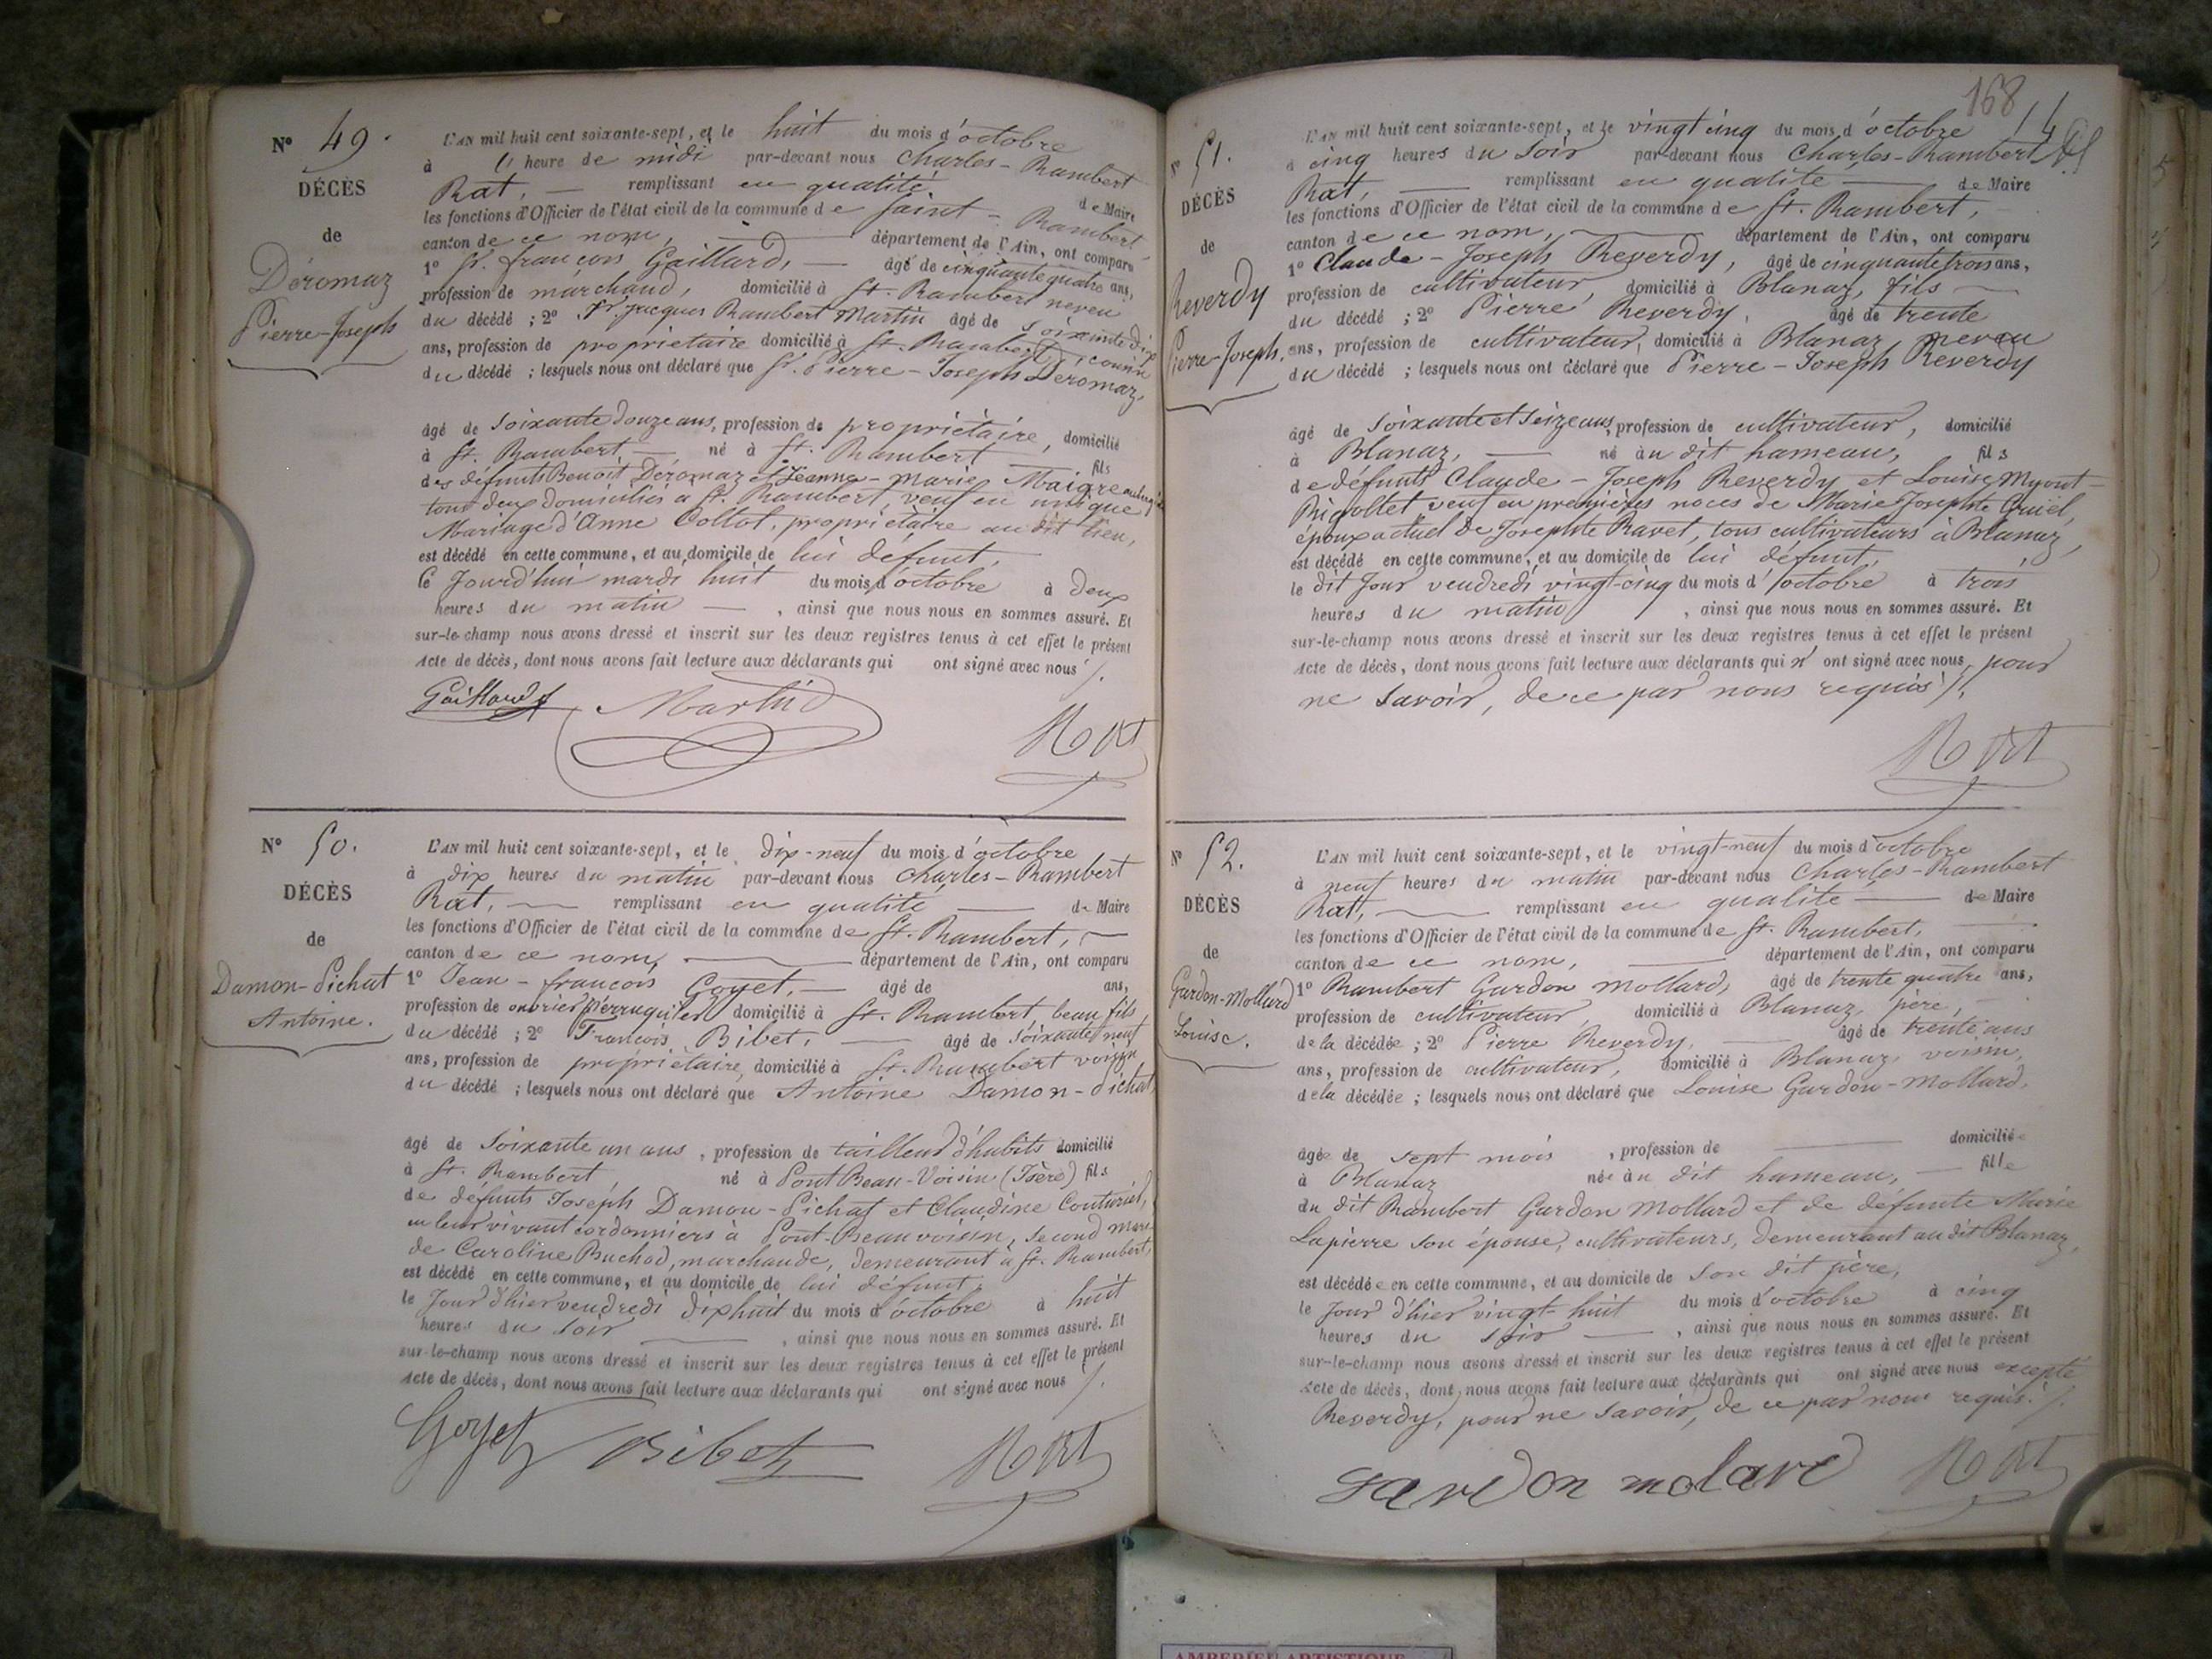 N° 49.
DÉCÈS
de
Déromaz
Pierre-Joseph
L'AN mil huit cent soixante-sept, et le huit du mois d'octobre
à l'heure de midi par-devant nous Charles-Rambert
Rat, remplissant en qualité de Maire
les fonctions d'Officier de l'état civil de la commune de Saint-Rambert
canton de ce nom, département de l'Ain, ont comparu
1° Sr. françois Gaillard, âgé de cinquante quatre ans,
profession de marchand, domicilié à St. Rambert neveu
du décédé ; 2° Sr. Jacques Rambert Martin âgé de soixante dix
ans, profession de propriétaire domicilié à St. Rambert, cousin
du décédé ; lesquels nous ont déclaré que Sr. Pierre-Joseph Déromaz,
âgé de soixante douze ans, profession de propriétaire, domicilié
à St. Rambert, né à St. Rambert fils
des défunts Benoit Déromaz et Jeanne-Marie Maigre
tous deux domiciliés à St. Rambert, veuf en unique
Mariage d'Anne Collot, propriétaire au dit lieu,
est décédé en cette commune, et au domicile de lui défunt,
le Jourd'hui mardi huit du mois d'octobre à deux
heures du matin, ainsi que nous nous en sommes assuré. Et
sur-le-champ nous avons dressé et inscrit sur les deux registres tenus à cet effet le présent
Acte de décès, dont nous avons fait lecture aux déclarants qui ont signé avec nous /.
Gaillard Martin Rat
N° 50.
DÉCÈS
de
Damon-Pichat
Antoine.
L'AN mil huit cent soixante-sept, et le dix-neuf du mois d'octobre
à dix heures du matin par-devant nous Charles-Rambert
Rat, remplissant en qualité de Maire
les fonctions d'Officier de l'état civil de la commune de St. Rambert,
canton de ce nom, département de l'Ain, ont comparu
1° Jean-françois Goyet, âgé de ans,
profession de ouvrier perruquier domicilié à St. Rambert, beau fils
du décédé ; 2° François Bibet, âgé de soixante neuf
ans, profession de propriétaire, domicilié à St. Rambert voisin
du décédé ; lesquels nous ont déclaré que Antoine Damon-Pichat,
âgé de soixante un ans, profession de tailleur d'habits domicilié
à St. Rambert né à Pont Beau-Voisin (Isère) fils
de défunts Joseph Damon-Pichat et Claudine Couturier,
en leur vivant cordonniers à Pont-Beauvoisin, second mari
de Caroline Buchod, marchande, demeurant à St. Rambert,
est décédé en cette commune, et au domicile de lui défunt,
le Jour d'hier vendredi dix huit du mois d'octobre à huit
heures du soir, ainsi que nous nous en sommes assuré. Et
sur-le-champ nous avons dressé et inscrit sur les deux registres tenus à cet effet le présent
Acte de décès, dont nous avons fait lecture aux déclarants qui ont signé avec nous /.
Goyet Bibet Rat
168
N° 51.
DÉCÈS
de
Reverdy
Pierre-Joseph.
L'AN mil huit cent soixante-sept, et le vingt cinq du mois d'octobre
à cinq heures du soir par-devant nous Charles-Rambert
Rat, remplissant en qualité de Maire
les fonctions d'Officier de l'état civil de la commune de St. Rambert,
canton de ce nom, département de l'Ain, ont comparu
1° Claude-Joseph Reverdy, âgé de cinquante trois ans,
profession de cultivateur domicilié à Blanaz, fils
du décédé ; 2° Pierre Reverdy, âgé de trente
ans, profession de cultivateur, domicilié à Blanaz neveu
du décédé ; lesquels nous ont déclaré que Pierre-Joseph Reverdy
âgé de soixante et seize ans, profession de cultivateur, domicilié
à Blanaz, né au dit hameau, fils
de défunts Claude-Joseph Reverdy et Louise Myont-
Rigollet veuf en premières noces de Marie Josephte
époux actuel de Josephte Ravet, tous cultivateurs à Blanaz,
est décédé en cette commune, et au domicile de lui défunt,
le dit Jour vendredi vingt-cinq du mois d'octobre à trois
heures du matin, ainsi que nous nous en sommes assuré. Et
sur-le-champ nous avons dressé et inscrit sur les deux registres tenus à cet effet le présent
Acte de décès, dont nous avons fait lecture aux déclarants qui n'ont signé avec nous, pour
ne savoir, de ce par nous requis /.
Rat
N° 52.
DÉCÈS
de
Gardon-Mollard
Louise.
L'AN mil huit cent soixante-sept, et le vingt-neuf du mois d'octobre
à neuf heures du matin par-devant nous Charles-Rambert
Rat, remplissant en qualité de Maire
les fonctions d'Officier de l'état civil de la commune de St. Rambert,
canton de ce nom, département de l'Ain, ont comparu
1° Rambert Gardon Mollard, âgé de trente quatre ans,
profession de cultivateur, domicilié à Blanaz, père,
de la décédée ; 2° Pierre Reverdy, âgé de trente ans
ans, profession de cultivateur, domicilié à Blanaz, voisin,
de la décédée ; lesquels nous ont déclaré que Louise Gardon-Mollard,
âgée de sept mois, profession de domiciliée
à Blanaz née au dit hameau, fille
du dit Rambert Gardon Mollard et de défunte Marie
Lapierre son épouse, cultivateurs, demeurant au dit Blanaz,
est décédée en cette commune, et au domicile de son dit père,
le Jour d'hier vingt-huit du mois d'octobre à cinq
heures du soir, ainsi que nous nous en sommes assuré. Et
sur-le-champ nous avons dressé et inscrit sur les deux registres tenus à cet effet le présent
Acte de décès, dont nous avons fait lecture aux déclarants qui ont signé avec nous excepté
Reverdy, pour ne savoir, de ce par nous requis /.
gardon molard Rat
AMBERIEU ARTISTIQUE